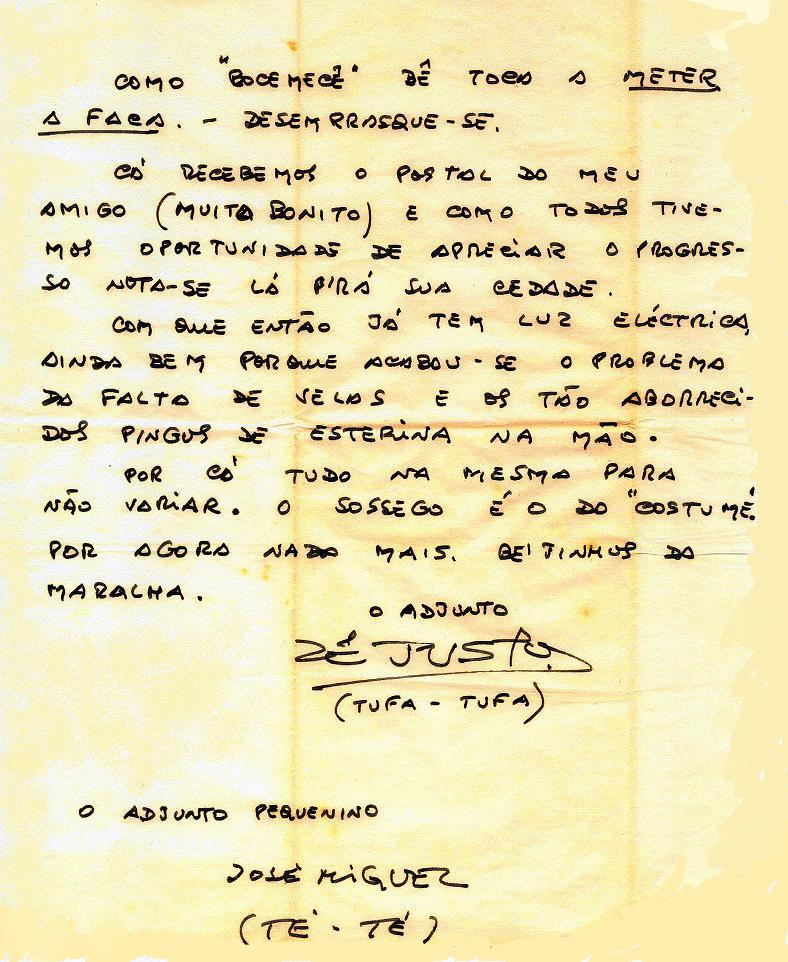 COMO "BOCEMECÊ" BÊ TOCA A METER
A FACA. - DESEMPRASQUE-SE.
CÁ RECEBEMOS O POSTAL DO MEU
AMIGO (MUITA BONITO) E COMO TODOS TIVE-
MOS OPORTUNIDADE DE APRECIAR O PROGRES-
SO NOTA-SE LÁ PIRÁ SUA CEDADE.
COM QUE ENTÃO JÁ TEM LUZ ELÉCTRICA,
AINDA BEM PORQUE ACABOU-SE O PROBLEMA
DA FALTA DE VELAS E OS TÃO ABORRECI-
DOS PINGUS DE ESTERINA NA MÃO.
POR CÁ TUDO NA MESMA PARA
NÃO VARIAR. O SOSSEGO É O DO "COSTUME".
POR AGORA NADA MAIS. BEIJINHOS DA
MARALHA.
O ADJUNTO
ZÉ JUSTO
(TUFA - TUFA)
O ADJUNTO PEQUENINO
JOSÉ MIGUEL
(TÉ - TÉ)